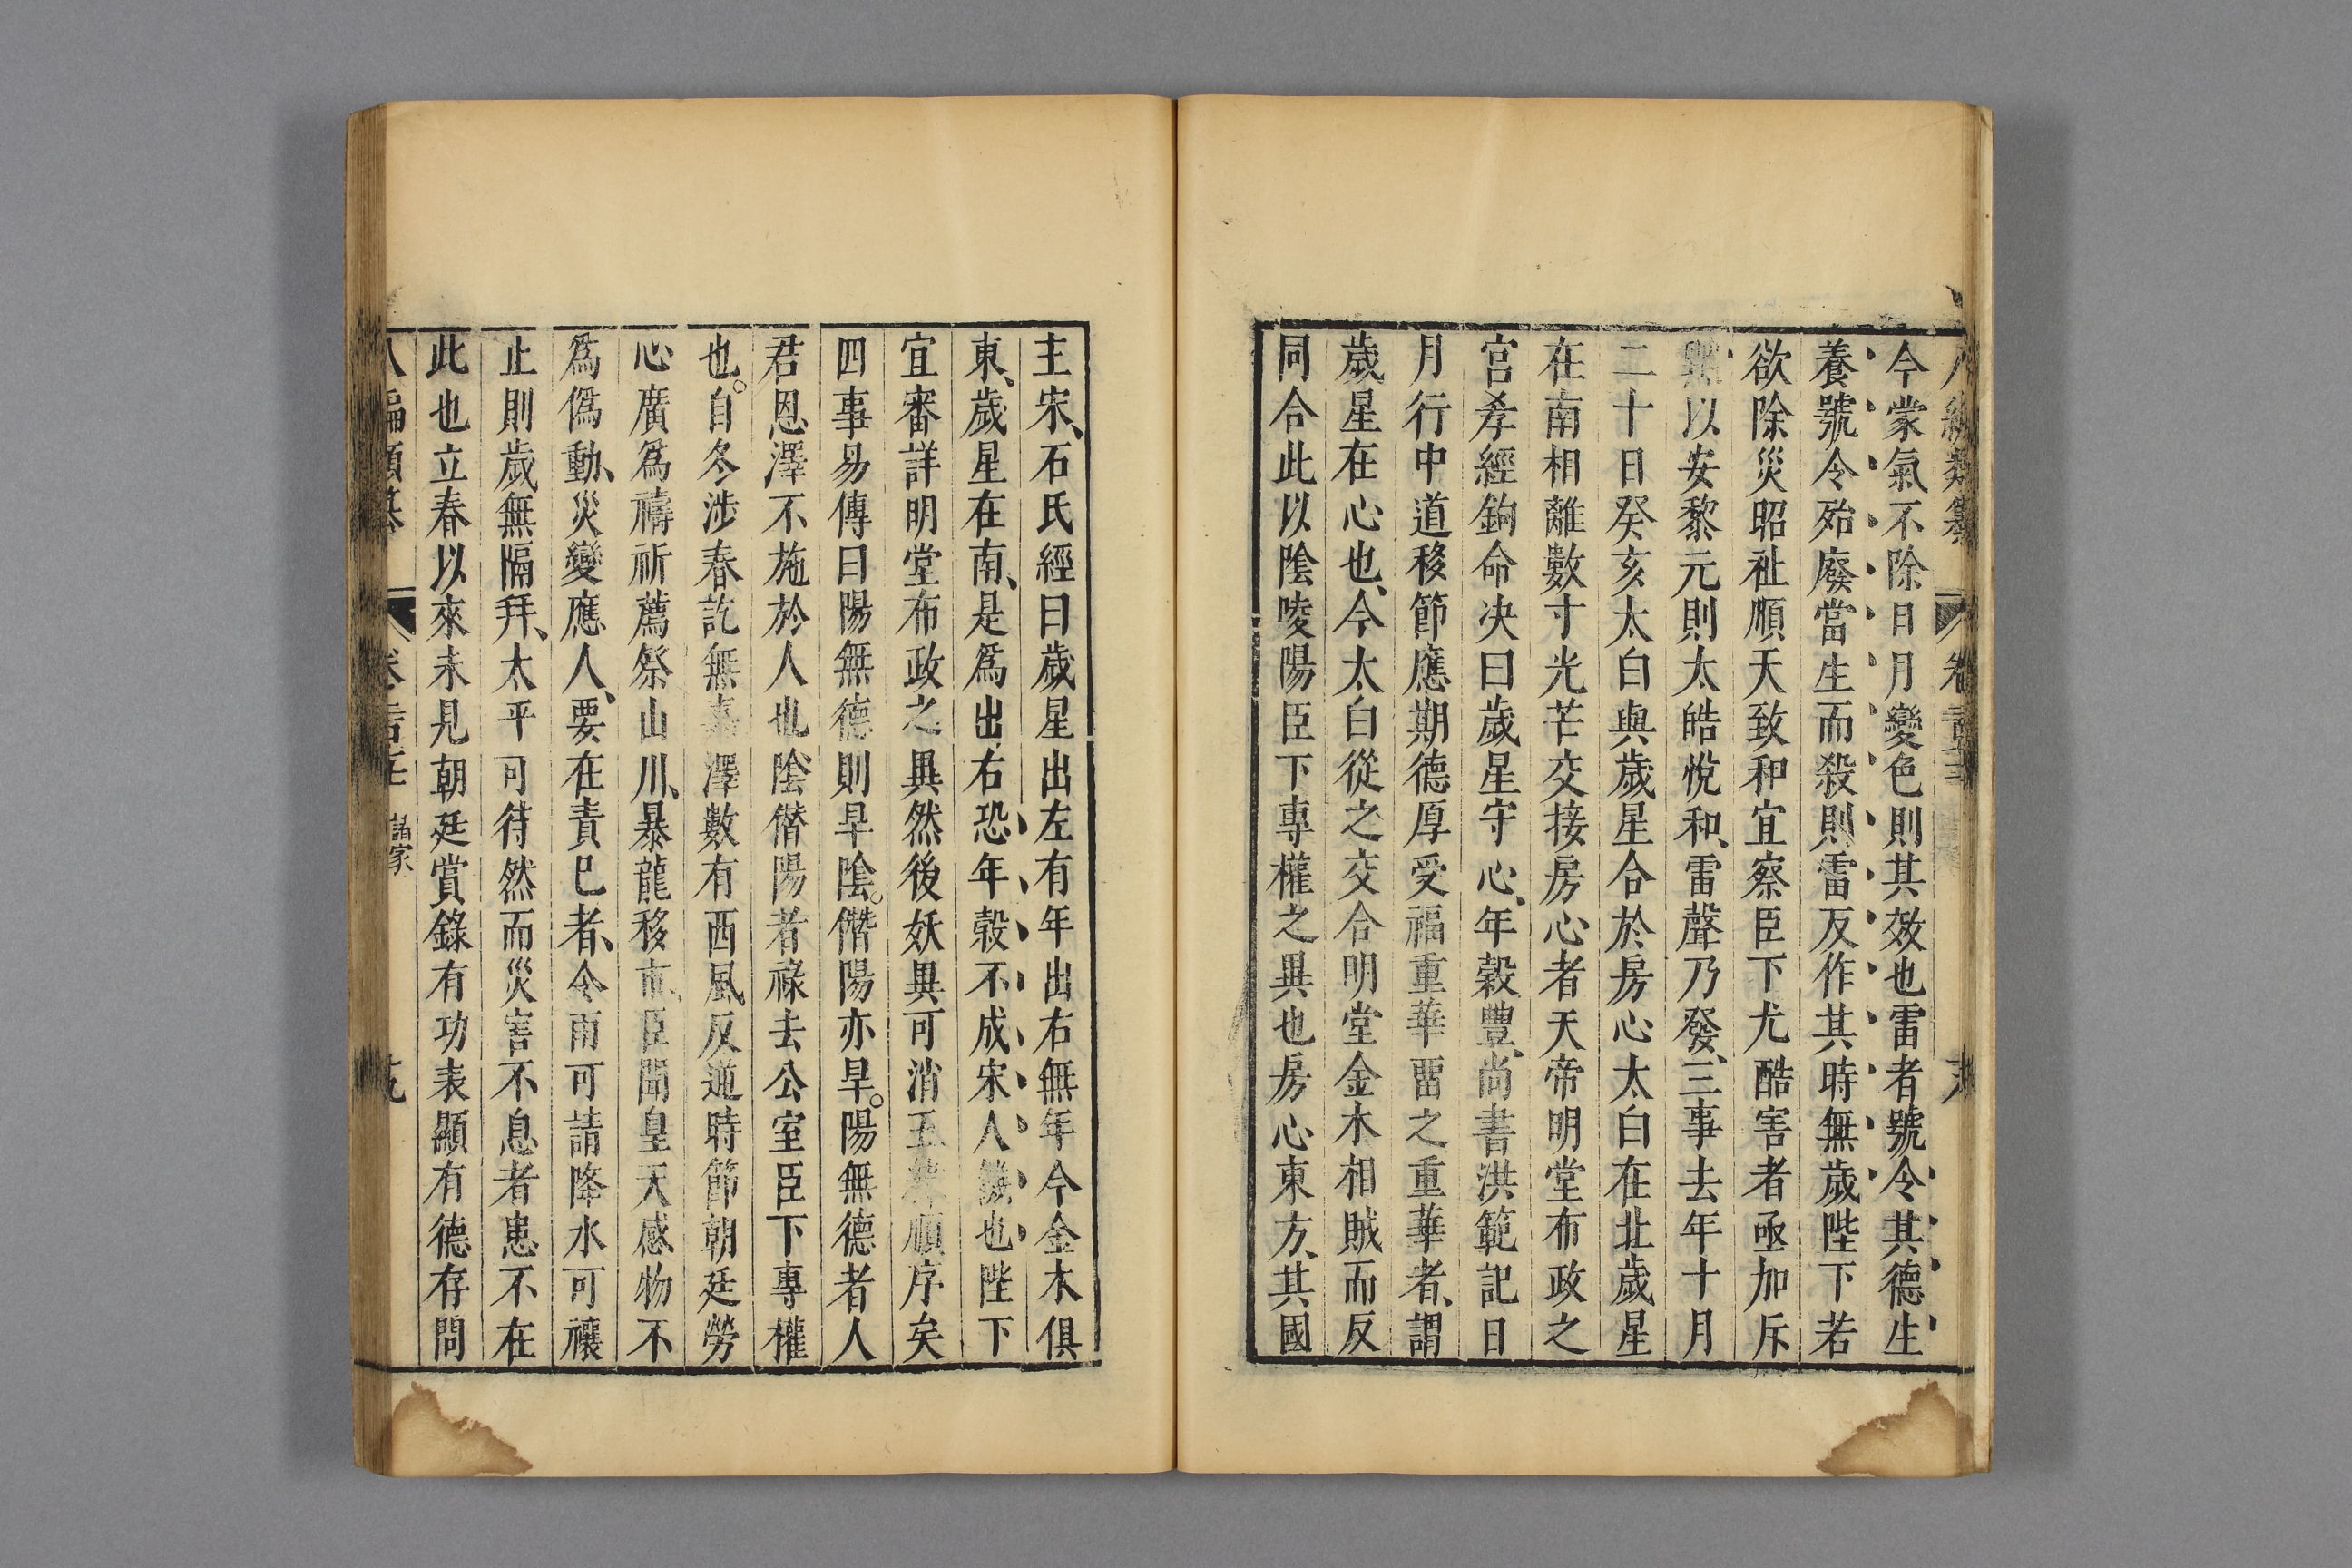 今蒙氣不除日月變色則其效也雷者號令其德生
養號令殆廢當生而殺則雷反作其時無歲陛下若
欲除災昭祉順天致和宜察臣下尤酷害者亟加斥
黜以安黎元則太皓悅和、雷聲乃發、三事去年十月
二十日癸亥太白與歲星合於房心太白在北歲星
在南相離數寸光芒交接房心者天帝明堂布政之
宮孝經鉤命决曰歲星守心、年穀豐、尚書洪範記曰
月行中道移節應期德厚受福重華畱之重華者、謂
歲星在心也、今太白從之交合明堂金木相賊而反
同合此以陰陵陽臣下專權之異也房心東方、其國
主宋、石氏經曰歲星出左有年出右無年今金木俱
東、歲星在南、是爲出右恐年穀不成宋人饑也陛下
宜審詳明堂布政之異然後妖異可消五緯順序矣
四事易傳曰陽無德則旱陰。僭陽亦旱。陽無德者人
君恩澤不施於人也陰僭陽者祿去公室臣下專權
也。自冬涉春訖無嘉澤數有西風、反逆時節朝廷勞
心廣爲禱祈薦祭山川、暴龍移市、臣聞皇天感物不
爲僞動、災變應人、要在責已者、令雨可請降水可禳
止則歲無隔幷、太平可待然而災害不息者患不在
此也立春以來未見朝廷賞錄有功表顯有德存問
諸家